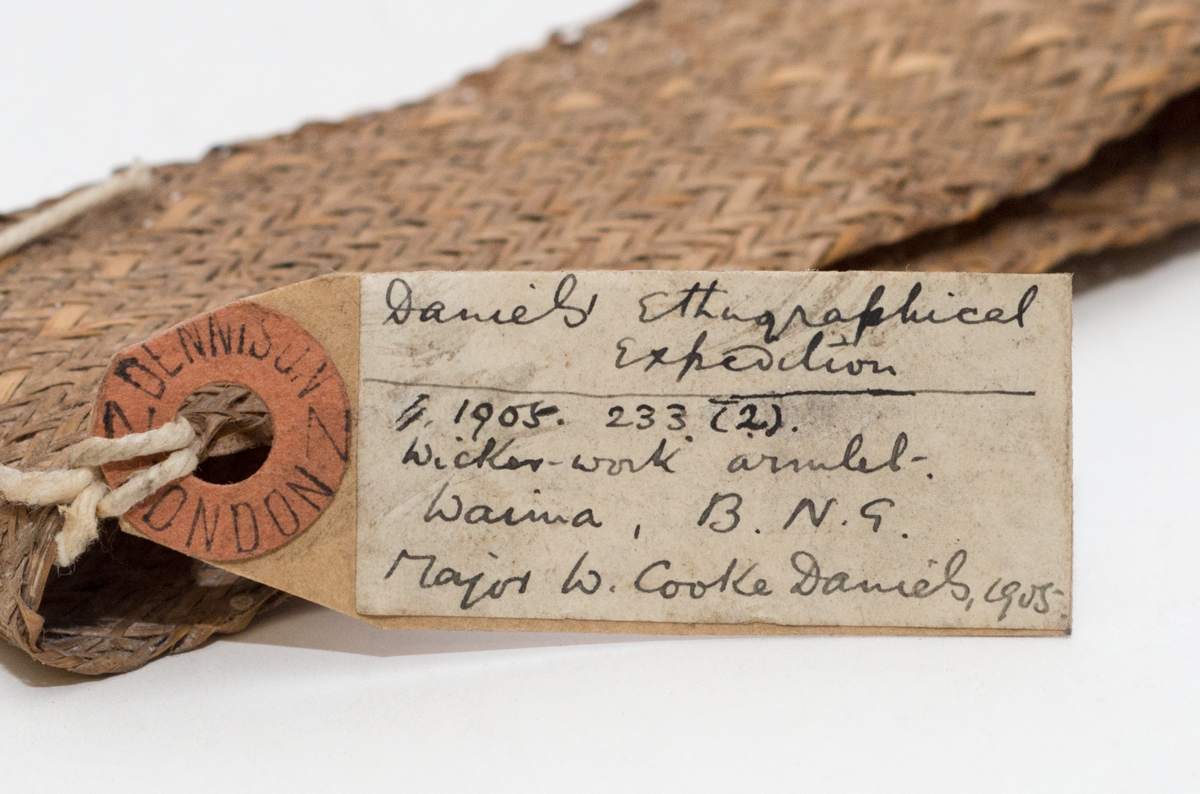 DENNISON
LONDON
Daniels Ethnographical
Expedition
1905. 233 (2).
Wicker-work armlet.
Waima, B. N. G.
Major W. Cooke Daniels, 1905.